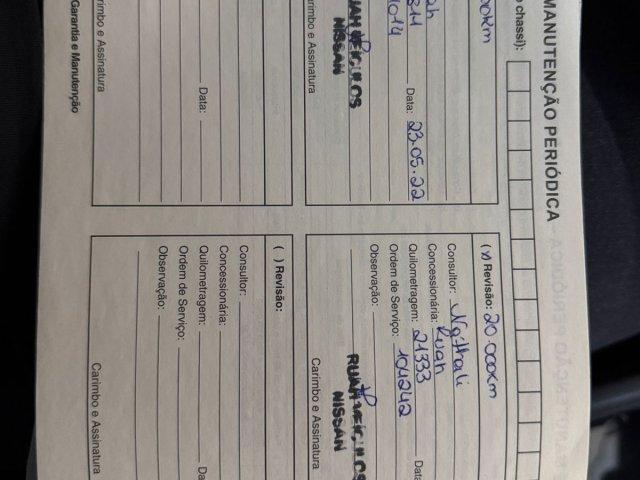 MANUTENÇÃO PERIÓDICA
chassi):
Data: 23.05.22
RUAH VEÍCULOS
NISSAN
Carimbo e Assinatura
Data:
Carimbo e Assinatura
Garantia e Manutenção
Revisão: 20.000Km
Consultor: Nathali
Concessionária: Ruah
Quilometragem: 21333
Data
Ordem de Serviço: 104242
Observação:
RUAH VEÍCULOS
NISSAN
Carimbo e Assinatura
( ) Revisão:
Consultor:
Concessionária:
Quilometragem:
Ordem de Serviço:
Observação:
Carimbo e Assinatura